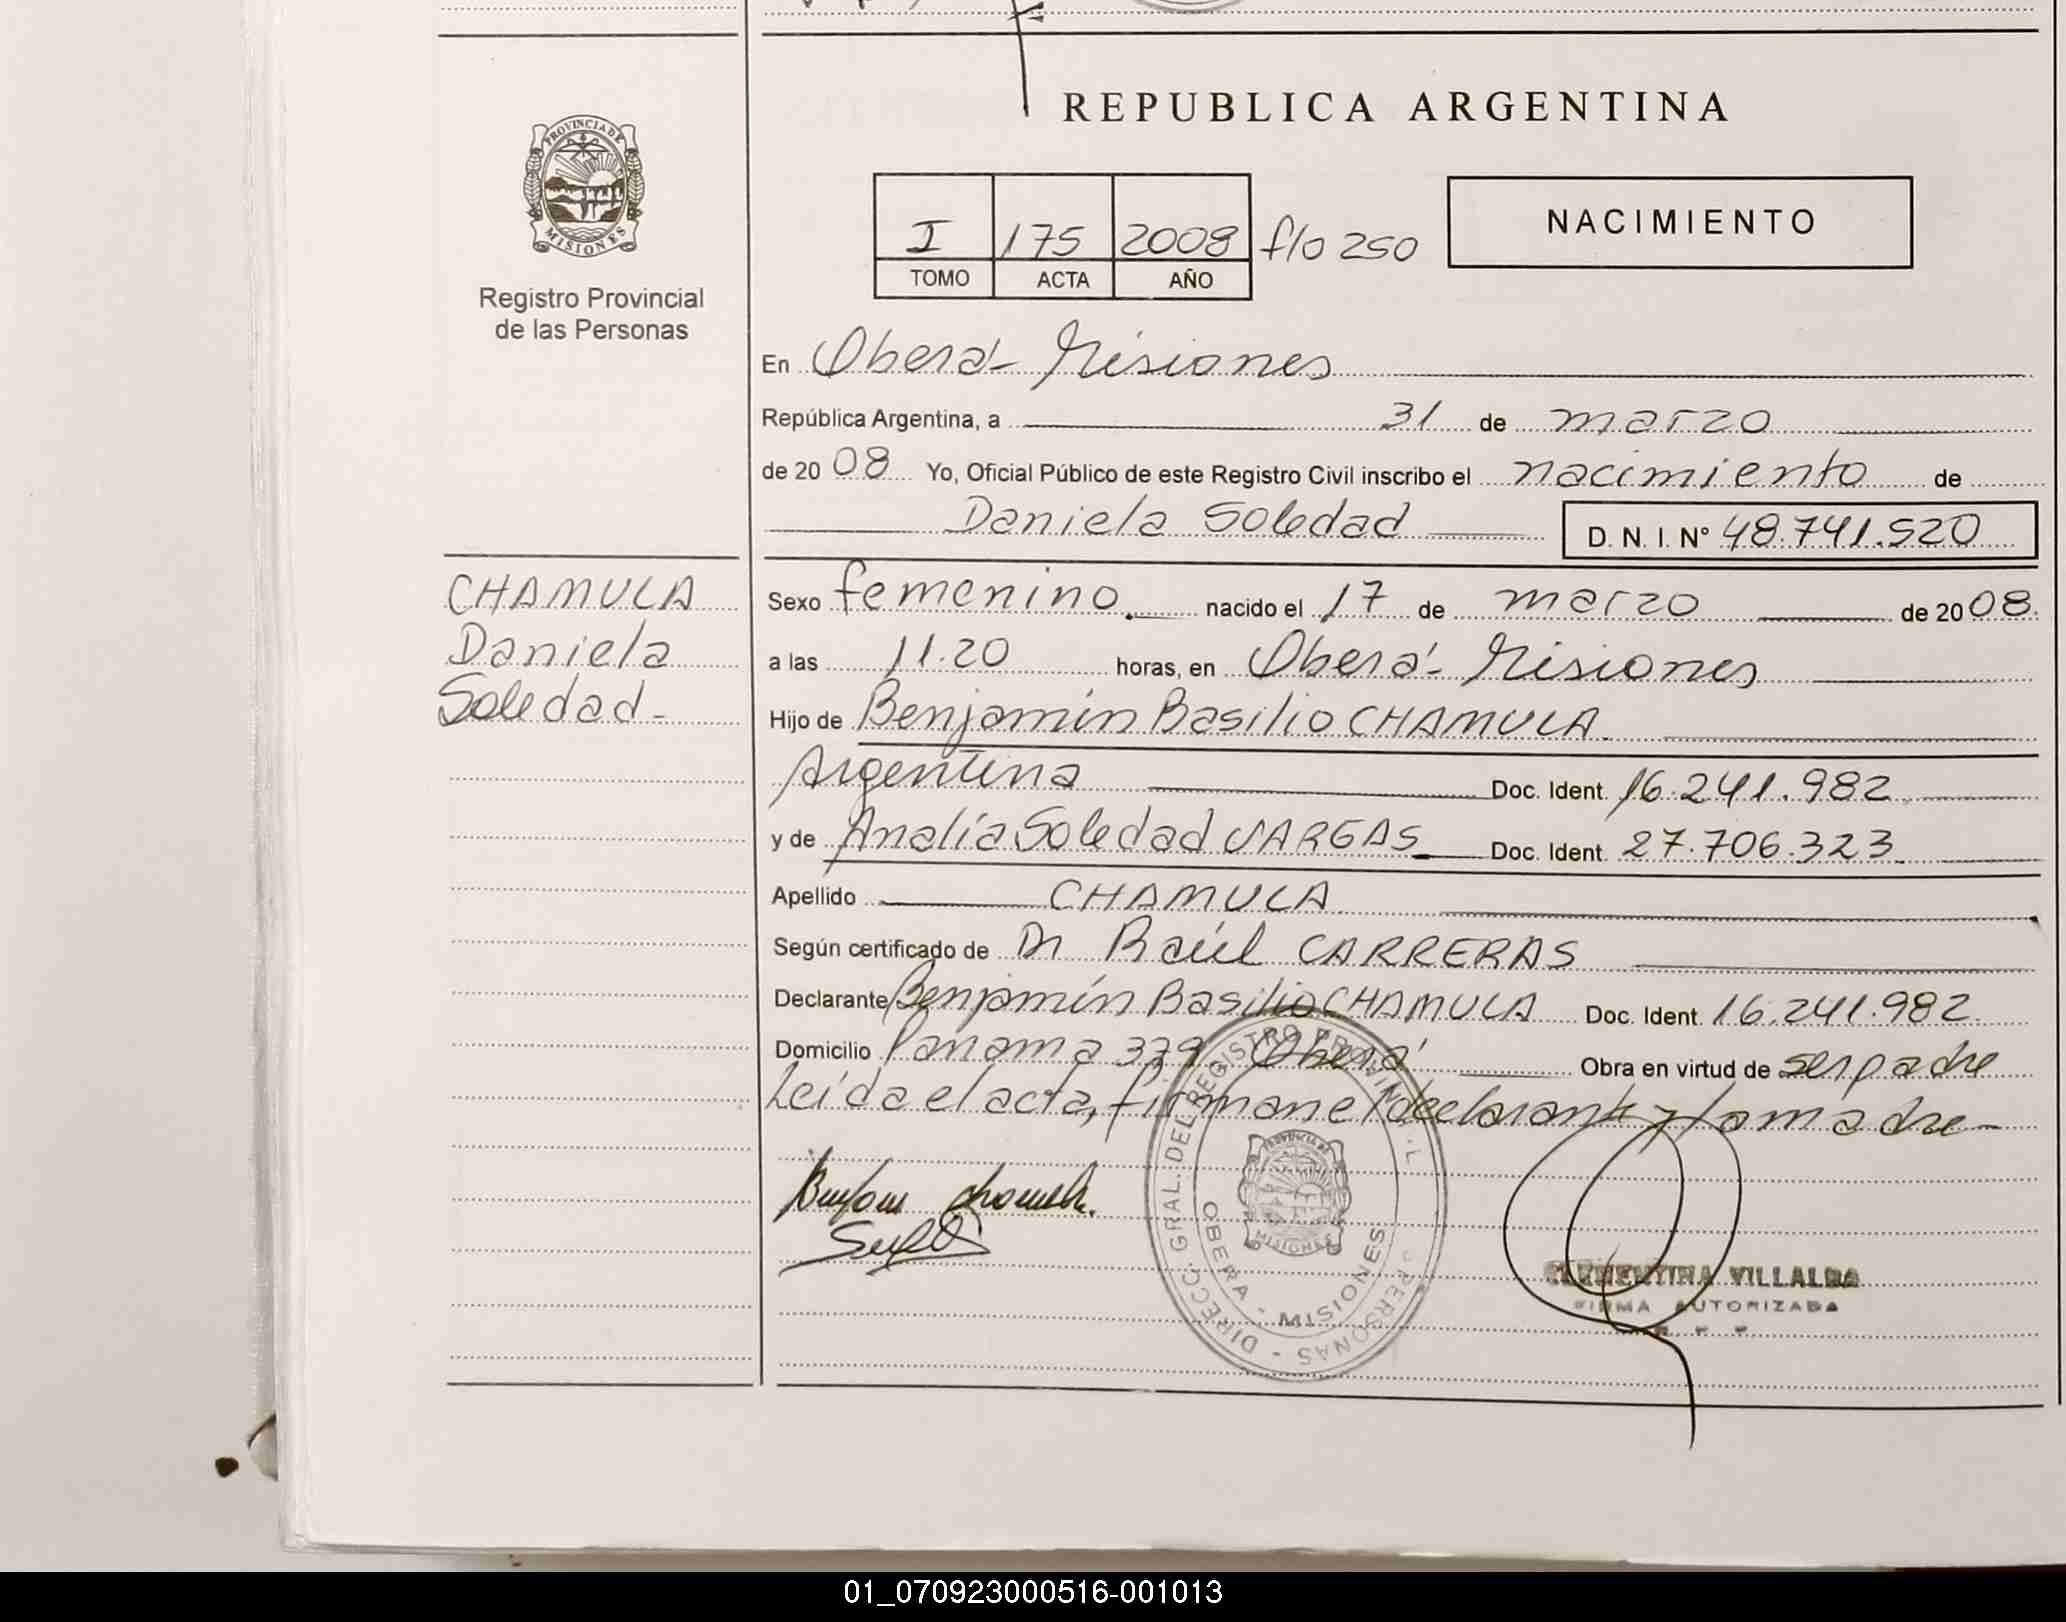 REPUBLICA ARGENTINA
PROVINCIA DE
MISIONES
Registro Provincial
de las Personas
I 175 2008 f/o 250
TOMO ACTA AÑO
NACIMIENTO
En Oberá - Misiones
República Argentina, a 31 de marzo
de 20 08 Yo, Oficial Público de este Registro Civil inscribo el nacimiento de
Daniela Soledad D. N. I. Nº 48.741.520
CHAMULA
Daniela
Soledad -
Sexo femenino. nacido el 17 de marzo de 20 08.
a las 11.20 horas, en Oberá - Misiones
Hijo de Benjamín Basilio CHAMULA
Argentina Doc. Ident. 16.241.982
y de Analía Soledad VARGAS Doc. Ident. 27.706.323
Apellido CHAMULA
Según certificado de Dr Raúl CARRERAS
Declarante Benjamín Basilio CHAMULA Doc. Ident. 16.241.982
Domicilio Panamá 379 Oberá Obra en virtud de ser padre
Leída el acta, firman el declarante y la madre -
DIRECC. GRAL. DEL REGISTRO PROVINCIAL PERSONAS
OBERA - MISIONES
MISIONES
CLEMENTINA VILLALBA
FIRMA AUTORIZADA
01_070923000516-001013